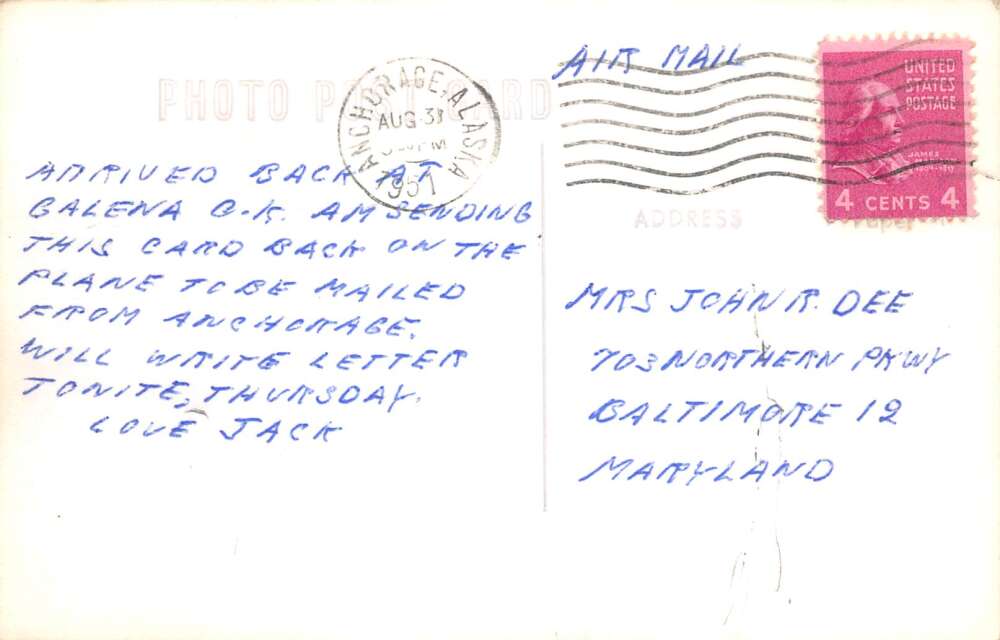 AIR MAIL
PHOTO POST CARD
ANCHORAGE, ALASKA
AUG 31
PM
1951
UNITED
STATES
POSTAGE
JAMES
4 CENTS 4
ADDRESS
ARRIVED BACK AT
GALENA O.K. AM SENDING
THIS CARD BACK ON THE
PLANE TO BE MAILED
FROM ANCHORAGE.
WILL WRITE LETTER
TONITE, THURSDAY.
LOVE JACK
MRS JOHN R. DEE
703 NORTHERN PKWY
BALTIMORE 12
MARYLAND